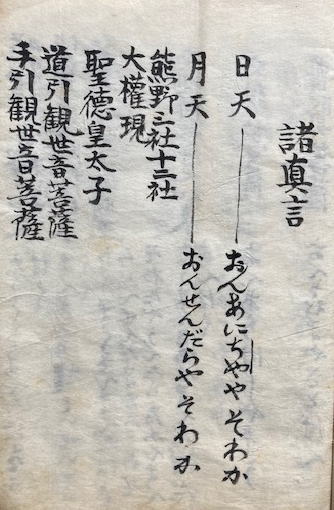 諸真言
日天――おんあにちやや そわか
月天――おんせんだらや そわか
熊野三社十二社
大權現
聖德皇太子
道引観世音菩薩
手引観世音菩薩